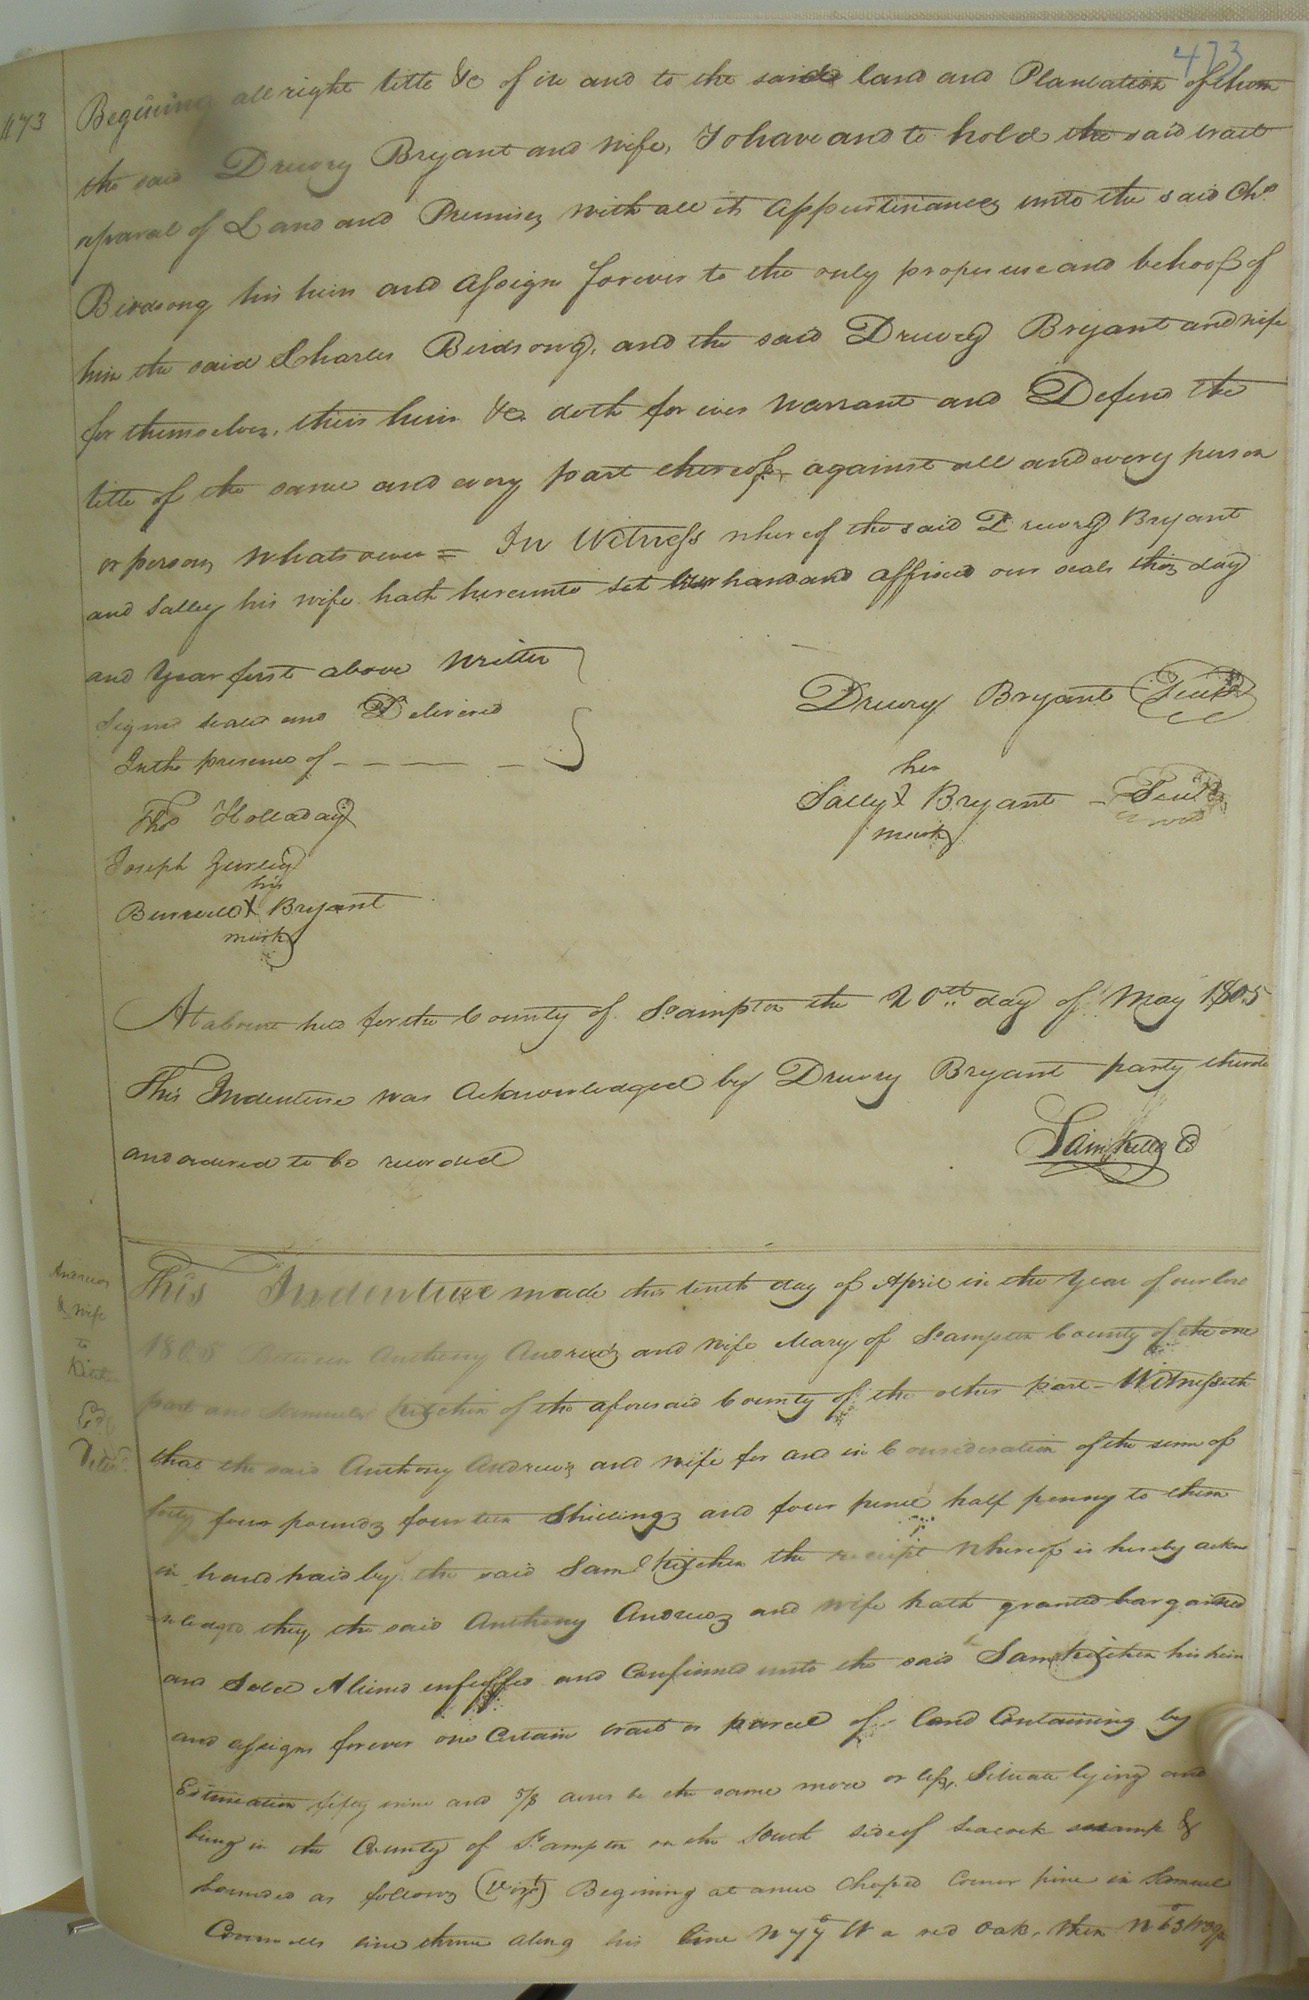 473
1173
Begining all right title &c of in and to the said land and Plantation of them
the said Drewry Bryant and wife, To have and to hold the said tract
or parcel of Land and Premises with all its Appurtinances unto the said Chs
Birdsong his heirs and assigns forever to the only proper use and behoof of
him the said Charles Birdsong, and the said Drewry Bryant and wife
for themselves, their heirs &c doth for ever warrant and Defend the
title of the same and every part thereof against all and every person
or persons whatsoever = In Witness whereof the said Drewry Bryant
and Salley his wife hath hereunto set hand and affixed our seals the day
and Year first above Written
Signd seald and Delivered
In the presence of
Drewry Bryant Seal
her
Sally X Bryant Seal
mark
Thos Holladay
Joseph Gurley
his
Burwell X Bryant
mark
At a Court held for the County of So.ampton the 20th day of May 1805
This Indenture was Acknowledged by Drewry Bryant party thereto
and ordered to be recorded
Saml Kello C
Andrews
& wife
to
Kitchen
This Indenture made this tenth day of April in the Year of our Lord
1805 Between Anthony Andrews and wife Mary of So.ampton County of the one
part and Samuel Kitchen of the aforesaid County of the other part - Witnesseth
that the said Anthony Andrews and wife for and in Consideration of the sum of
forty four pounds fourteen Shillings and four pence half penny to them
in hand paid by the said Saml Kitchen the receipt whereof is hereby ackno
=wledged they the said Anthony Andrews and wife hath granted bargained
and Sold Aliened enfeoffed and Confirmed unto the said Saml Kitchen his heirs
and assigns forever one Certain tract or parcel of Land Containing by
Estimation fifty nine and 5/8 acres be the same more or less, Situate lying and
being in the County of So.ampton on the South side of Seacock swamp &
bounded as follows (Vizt) Begining at a new Choped Corner pine in Samuel
line thence along his line N 77° W a red Oak, then N 63